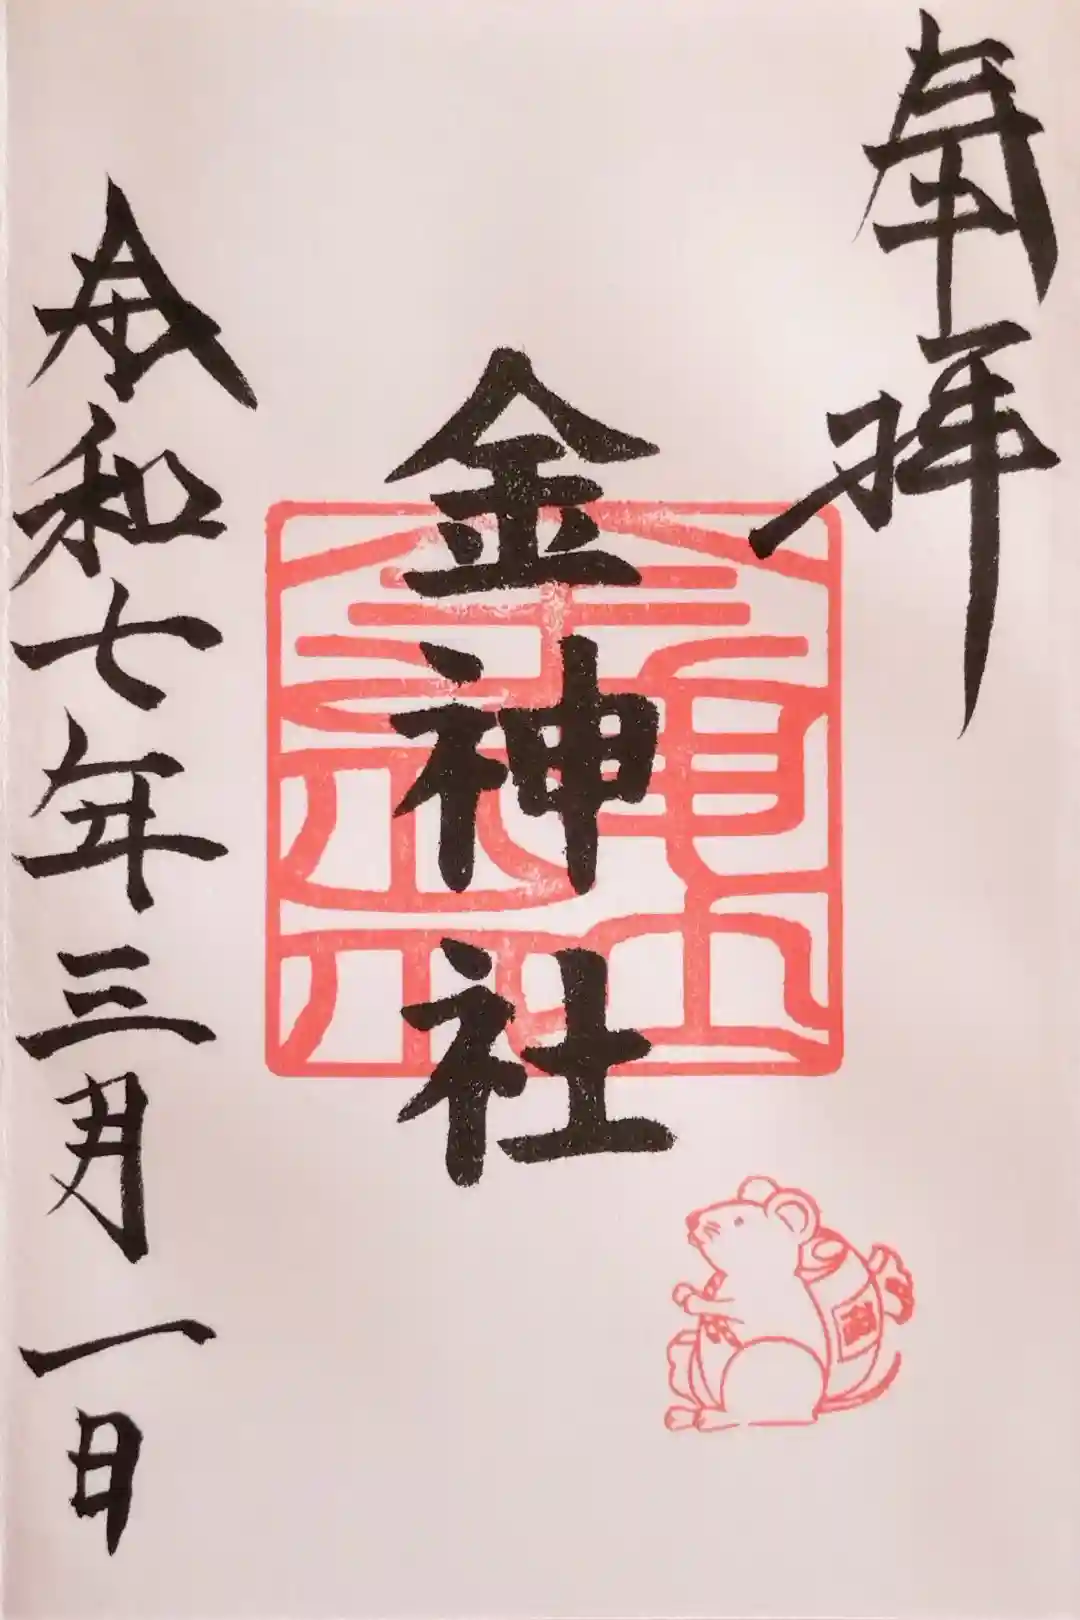 奉拝
金神社
令和七年三月一日
福